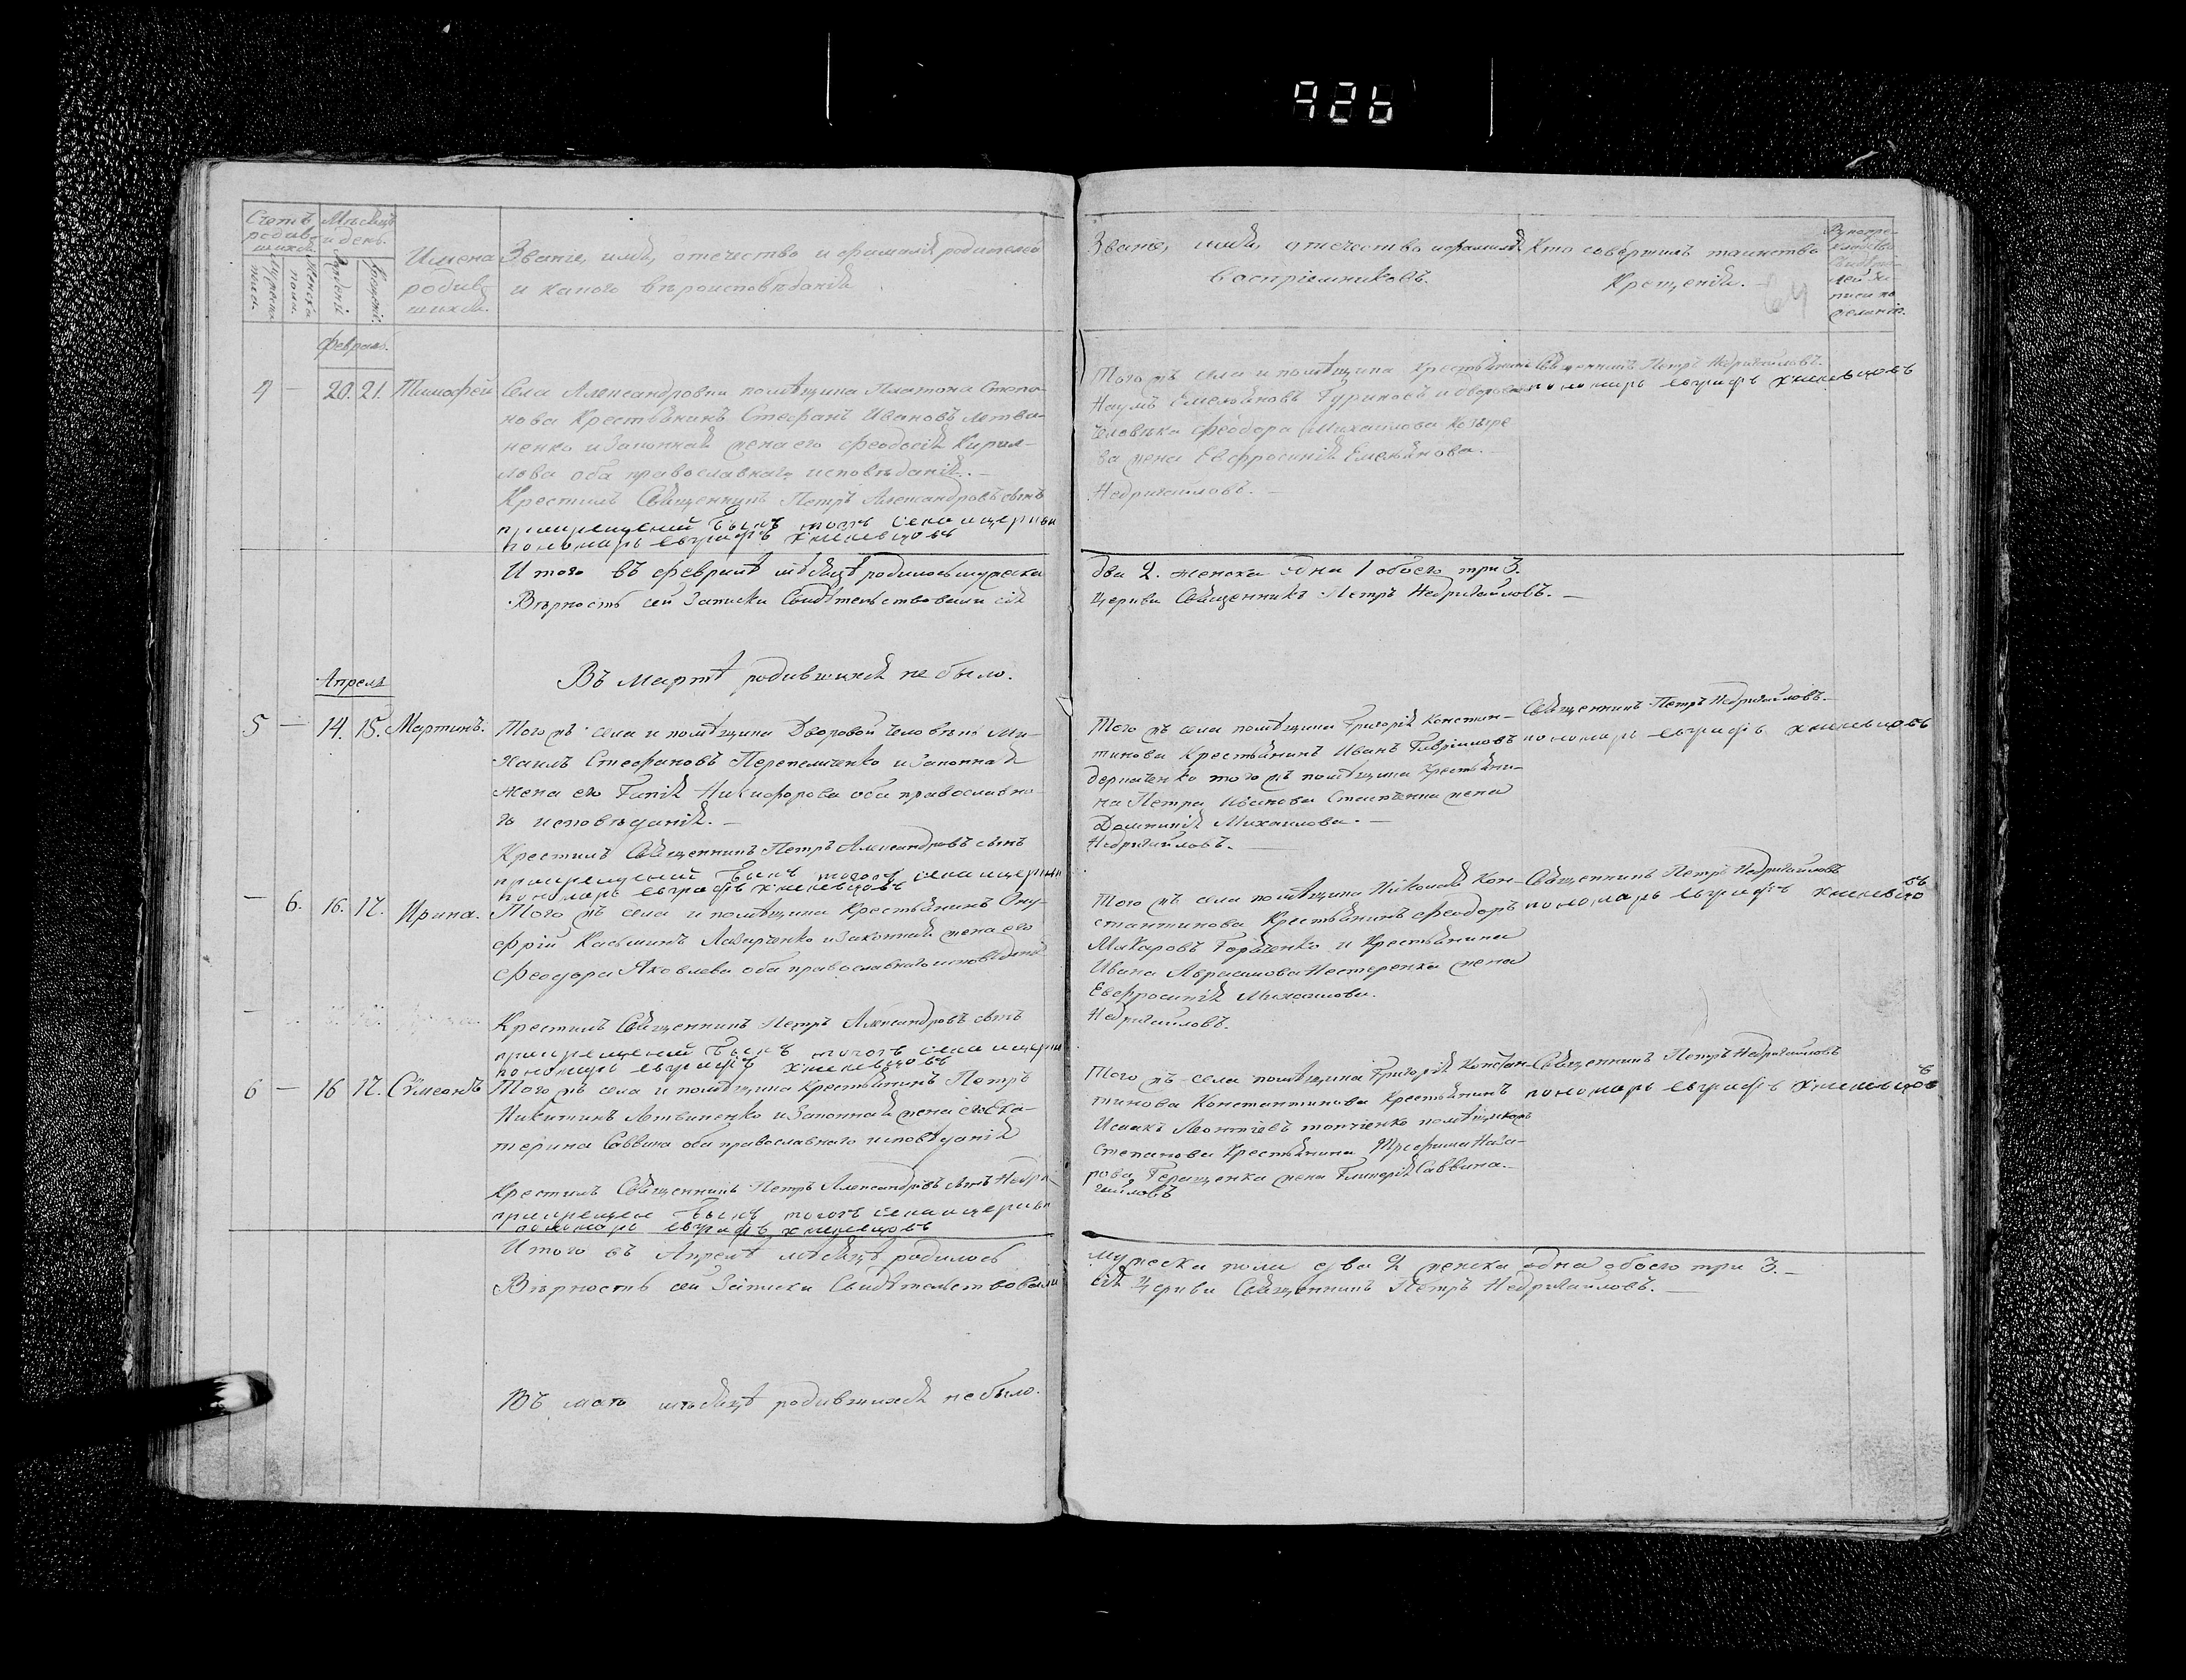 926
Счетъ родив-
шихся
Мѣсяцъ
и день.
Имена
родив-
шихся.
Званіе, имя, отечество и фамилія родителей
и какого вѣроисповѣданія
Мужеска
пола.
Женска
пола.
Рожденія
Крещенія.
Званіе, имя, отечество и фамилія
Воспріемниковъ.
Кто совершилъ таинство
Крещенія.
64
Рукопри-
кладство
свидѣте-
лей за-
писи по
желанію.
Февраль.
4 — 20. 21. Тимофей
Села Александровки помѣщика Платона Степа-
нова Крестьянинъ Стефанъ Ивановъ Летви-
ненко и Законная жена его Феодосія Кирил-
лова оба православнаго исповѣданія. —
Крестилъ Священникъ Петръ Александровъ сынъ
при крещеніи былъ тогожъ села и церкви
пономарь Евграфъ Хмелевцовъ
Того жъ села и помѣщика Крестьянинъ
Наумъ Емельяновъ Гуриновъ и дворова
человѣка Феодора Михаилова Козыре
ва жена Евфросинія Емельянова. —
Недригайловъ. —
Священникъ Петръ Недригайловъ.
пономарь Евграфъ Хмелевцовъ
Итого въ Февралѣ мѣсяцѣ родилось мужеска
два 2. женска одна 1 обоего три 3.
Вѣрность сей Записки Свидѣтельствовали сія
Церкви Священникъ Петръ Недригайловъ. —
Въ Мартѣ родившихся не было.
Апрель
5 — 14. 15. Мартинъ.
Того жъ села и помѣщика Дворовой человѣкъ Ми-
хаилъ Стефановъ Перепеличенко и Законная
жена его Гапія Никифорова оба православна-
го исповѣданія. —
Крестилъ Священникъ Петръ Александровъ сынъ
при крещеніи былъ тогожъ села и церкви
пономарь Евграфъ Хмелевцовъ
Того жъ села помѣщика Григорія Констан-
тинова Крестьянинъ Иванъ Гавріиловъ
Деркаченко того жъ помѣщика Крестьяни-
на Петра Иванова жена
Домникія Михаилова. —
Недригайловъ. —
Священникъ Петръ Недригайловъ. —
пономарь Евграфъ Хмелевцовъ
— 6. 16. 17. Ирина.
Того жъ села и помѣщика Крестьянинъ Ону-
фрій Касьминъ Лазарченко и Законная жена его
Феодора Яковлева оба православнаго исповѣданія
Крестилъ Священникъ Петръ Александровъ сынъ
при крещеніи былъ тогожъ села и церкви
пономарь Евграфъ Хмелевцовъ
Того жъ села помѣщика Николая Кон-
стантинова Крестьянинъ Феодоръ
Макаровъ Горяченко и Крестьянина
Ивана Авраамова Нестеренка жена
Евфросинія Михаилова.
Недригайловъ.
Священникъ Петръ Недригайловъ
пономарь Евграфъ Хмелевцовъ
6 — 16 17. Сѵмеонъ
Того жъ села и помѣщика Крестьянинъ Петръ
Никитинъ Летвиненко и Законная жена его Ека-
терина Саввина оба православнаго исповѣданія
Крестилъ Священникъ Петръ Александровъ сынъ Недри-
при крещеніи былъ тогожъ села и церкви
пономарь Евграфъ Хмелевцовъ
Того жъ села помѣщика Григорія Констан-
тинова Константинова Крестьянинъ
Исаакъ Леонтіевъ помѣщика
Степанова Крестьянина Трофима Наза-
рова Геращенка жена Гликерія Саввина. —
гайловъ
Священникъ Петръ Недригайловъ
пономарь Евграфъ Хмелевцовъ
Итого въ Апрелѣ мѣсяцѣ родилось
мужеска пола два 2 женска одна обоего три 3. —
Вѣрность сей Записки Свидѣтельствовали
сія Церкви Священникъ Петръ Недригайловъ. —
Въ маѣ мѣсяцѣ родившихся не было.